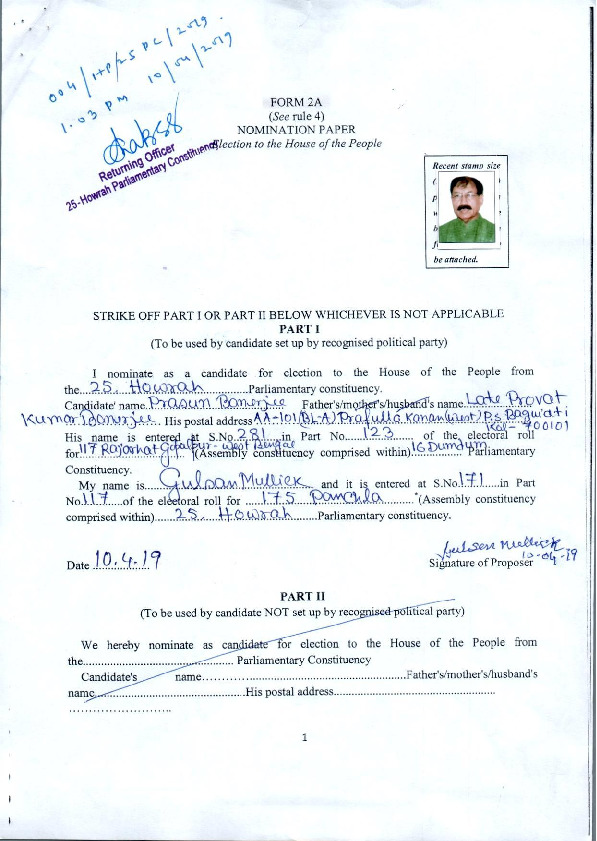 004/HP/25 PC/2019.
1.03 PM 10/04/2019
Returning Officer
25-Howrah Parliamentary Constituency
FORM 2A
(See rule 4)
NOMINATION PAPER
Election to the House of the People
Recent stamp size
be attached.
STRIKE OFF PART I OR PART II BELOW WHICHEVER IS NOT APPLICABLE
PART I
(To be used by candidate set up by recognised political party)
I nominate as a candidate for election to the House of the People from
the 25. Howrah Parliamentary constituency.
Candidate' name Prasun Banerjee Father's/mother's/husband's name Late Provat
Kumar Banerjee. His postal address AA-101(BL-A) Prafulla Kanan West/P.S Baguiati
Kol- 700101
His name is entered at S.No. 281 in Part No. 123 of the electoral roll
for 117 Rajarhat Gopalpur- West Bengal (Assembly constituency comprised within) 16 Dumdum Parliamentary
Constituency.
My name is Gulsan Mullick and it is entered at S.No 171 in Part
No. 117 of the electoral roll for 175 Panchla (Assembly constituency
comprised within) 25. Howrah Parliamentary constituency.
Date 10.4.19
Gulsan Mullick
10-04-19
Signature of Proposer
PART II
(To be used by candidate NOT set up by recognised political party)
We hereby nominate as candidate for election to the House of the People from
the.......... Parliamentary Constituency
Candidate's name.......... Father's/mother's/husband's
name.......... His postal address..........
..........
1